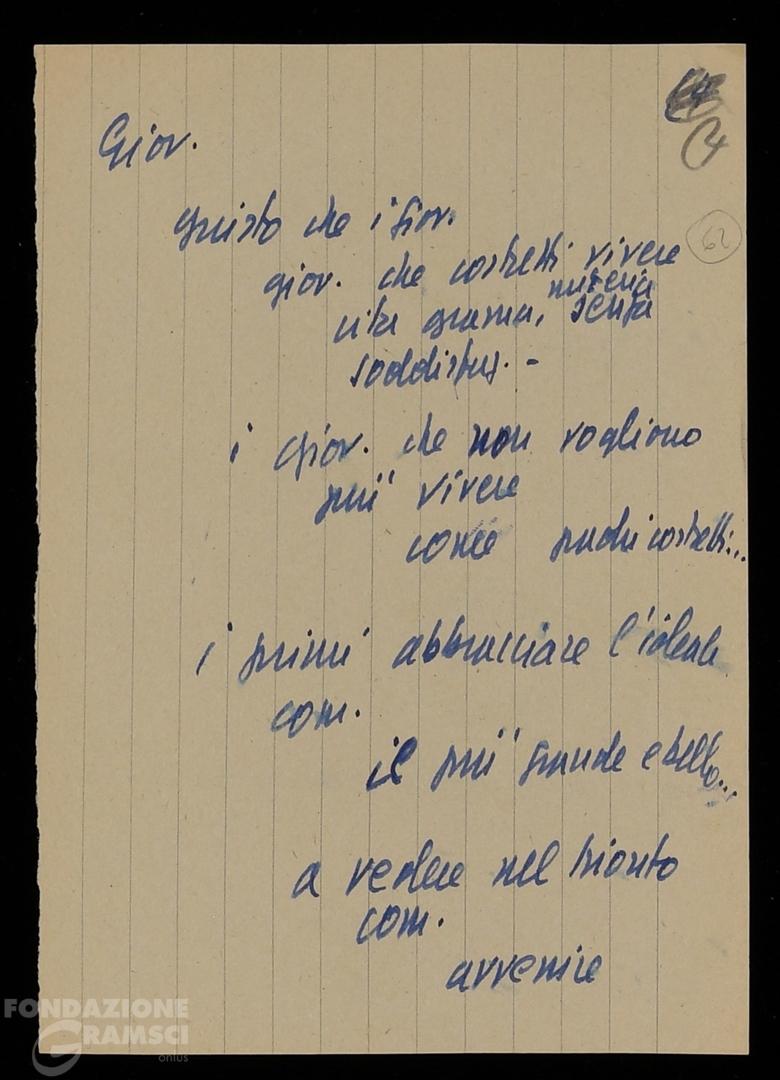 Giov.
giusto che i giov.
62
giov. che costretti vivere
miseria
vita grama, senza
soddisfaz. -
i giov. che non vogliono
più vivere
come padri costretti...
i primi abbracciare l'ideale
com.
il più grande e bello...
a vedere nel trionfo
com.
avvenire
FONDAZIONE
GRAMSCI
onlus